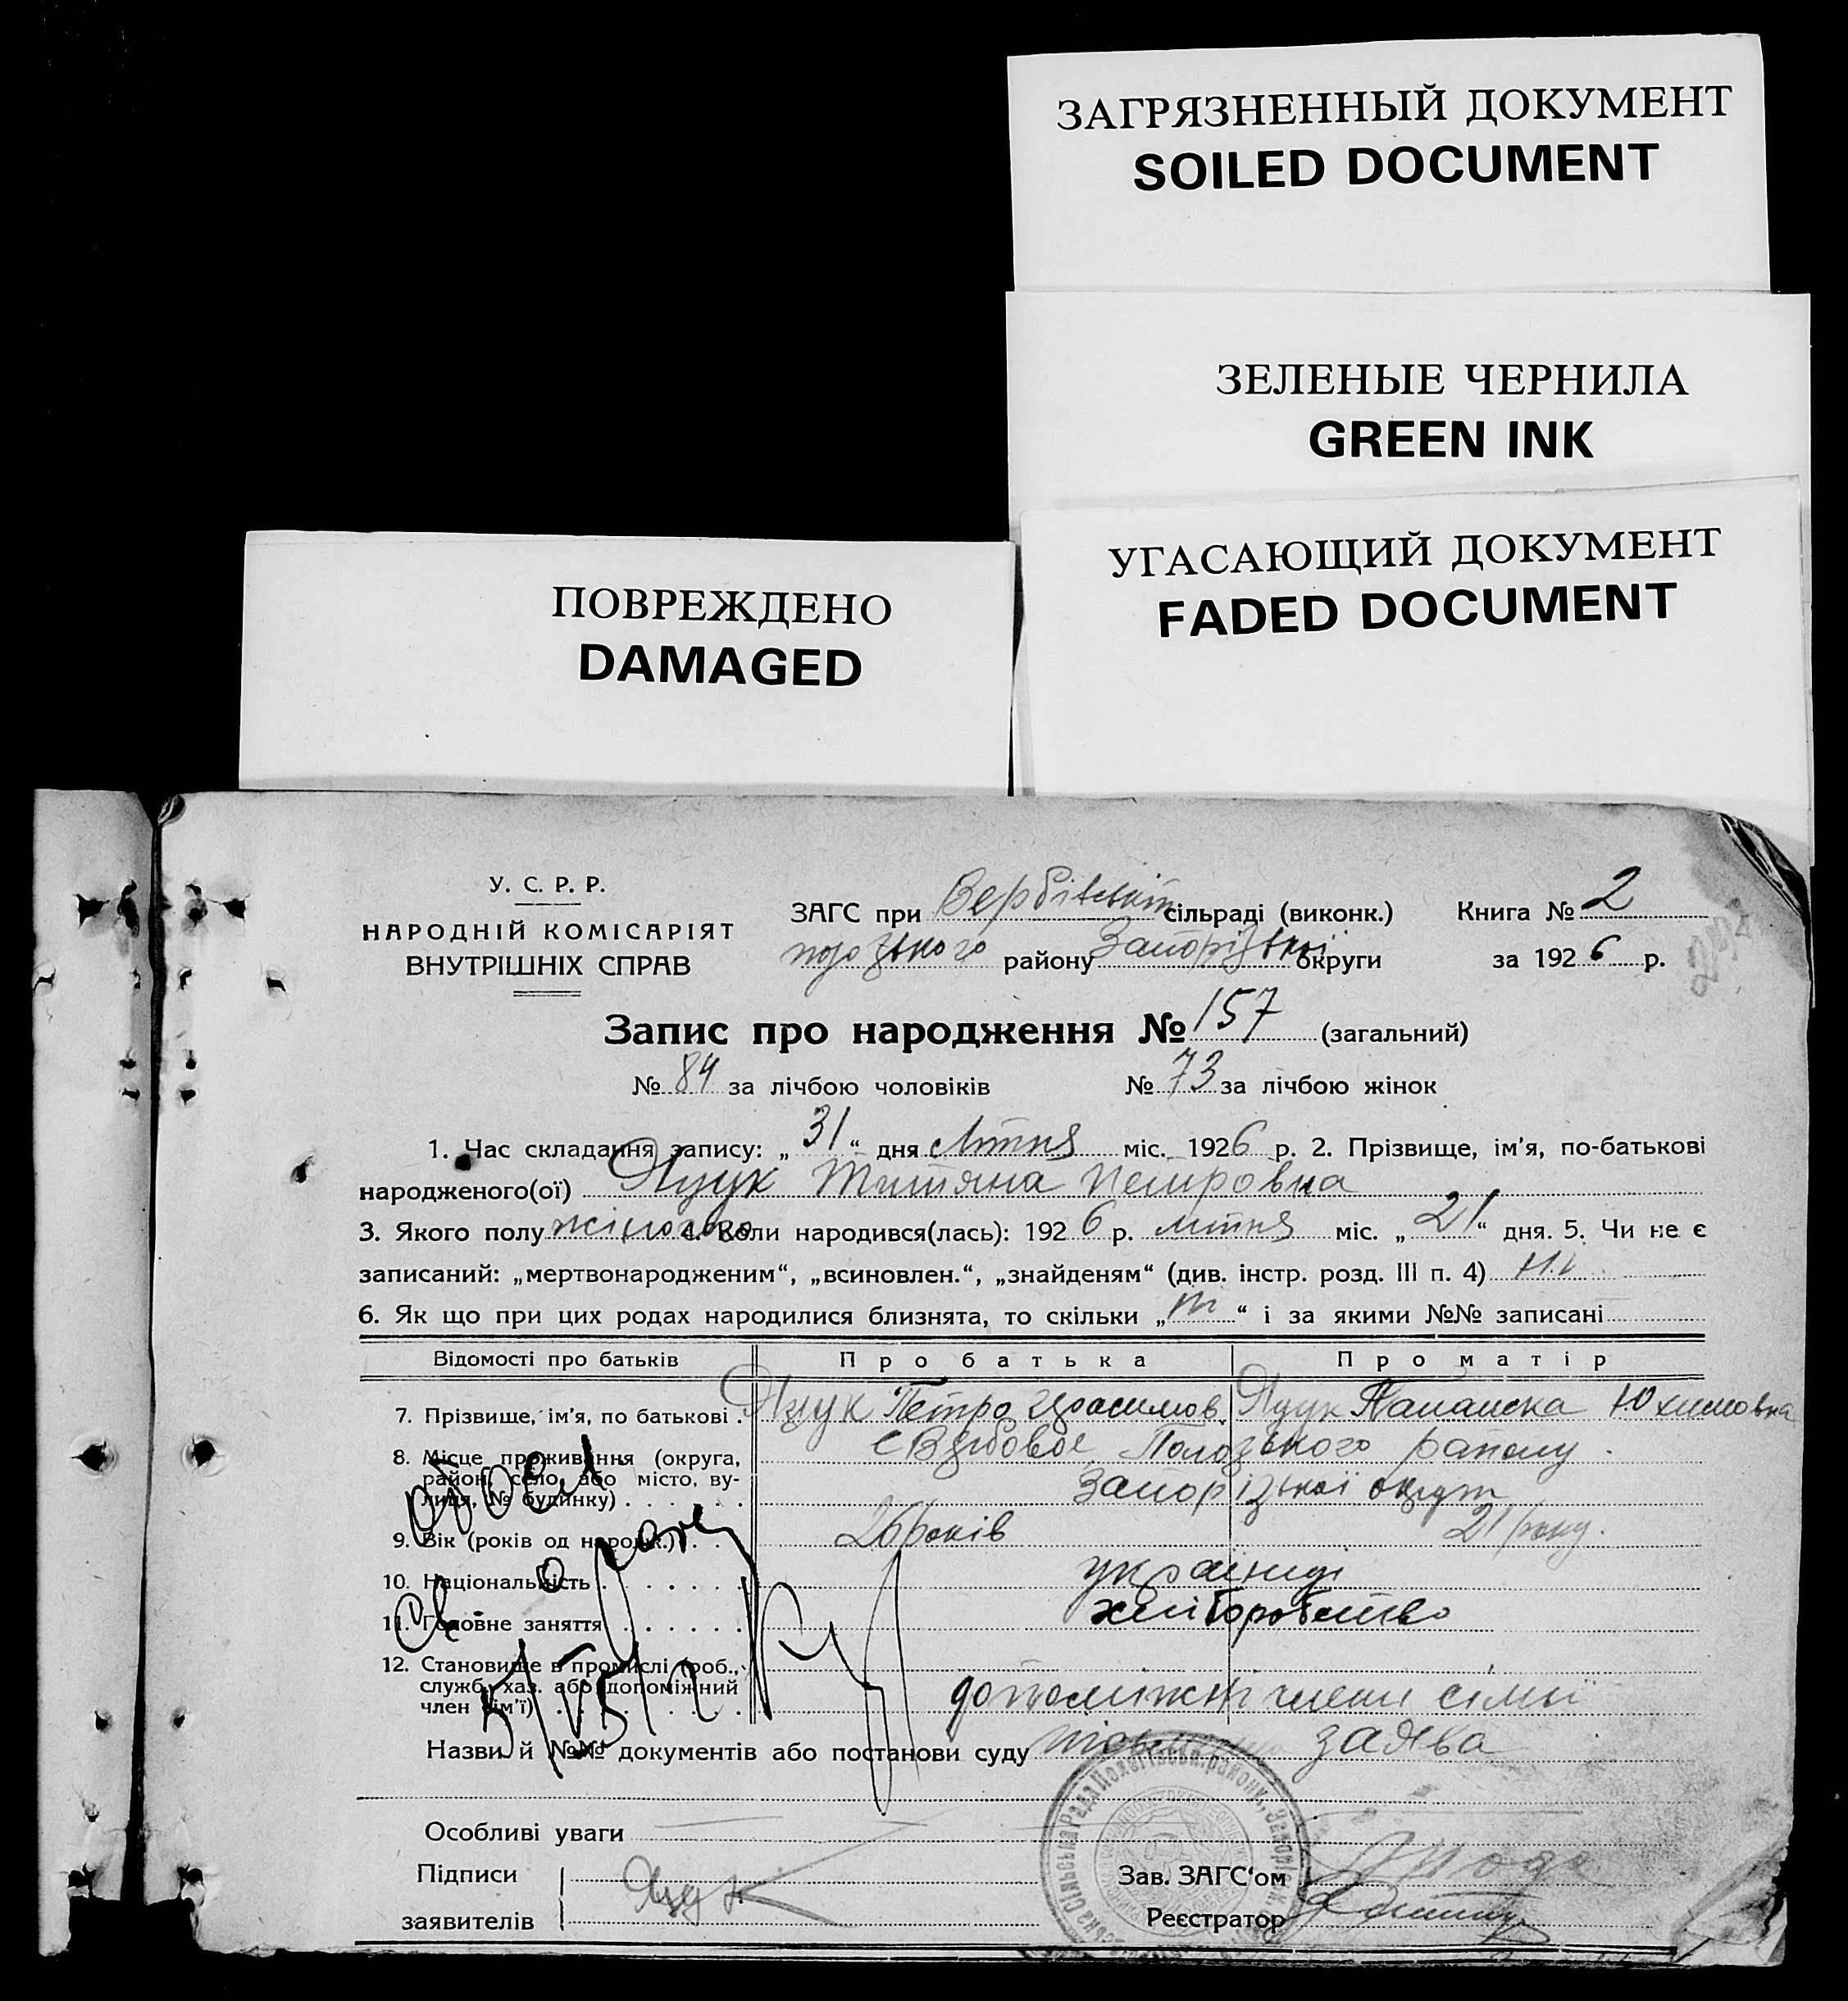 ЗАГРЯЗНЕННЫЙ ДОКУМЕНТ
SOILED DOCUMENT
ЗЕЛЕНЫЕ ЧЕРНИЛА
GREEN INK
УГАСАЮЩИЙ ДОКУМЕНТ
FADED DOCUMENT
ПОВРЕЖДЕНО
DAMAGED
У. С. Р. Р.
НАРОДНІЙ КОМІСАРІЯТ
ВНУТРІШНІХ СПРАВ
ЗАГС при Вербівській сільраді (виконк.) Книга № 2
району Запорізької округи за 1926 р.
Запис про народження № 157 (загальний)
№ 84 за лічбою чоловіків № 73 за лічбою жінок
1. Час складання запису: „31“ дня міс. 1926 р. 2. Прізвище, ім'я, по-батькові
народженого(ої) Яцук Титяна Петровна
3. Якого полу жіночого 4. Коли народився(лась): 1926 р. міс. „21“ дня. 5. Чи не є
записаний: „мертвонародженим“, „всиновлен.“, „знайденям“ (див. інстр. розд. III п. 4) Ні
6. Як що при цих родах народилися близнята, то скільки „ “ і за якими №№ записані
Відомості про батьків Про батька Про матір
7. Прізвище, ім'я, по батькові . Яцук Петро Яцук Юхимовна
8. Місце проживання (округа, район, село, або місто, вулиця, № будинку) . . . . . . Пологзького району.
Запорізької округи
9. Вік (років од народж.) . . . 26 років 21 року.
10. Національність . . . . . . . українці
11. Головне заняття . . . . . . хліборобство
12. Становище в промислі (роб., служб., хаз. або допоміжний член сім'ї) . . . . . . . допоміжні члени сімьї
Назви й №№ документів або постанови суду заява
Особливі уваги
Підписи
заявителів Яцук
Зав. ЗАГС'ом
Реєстратор